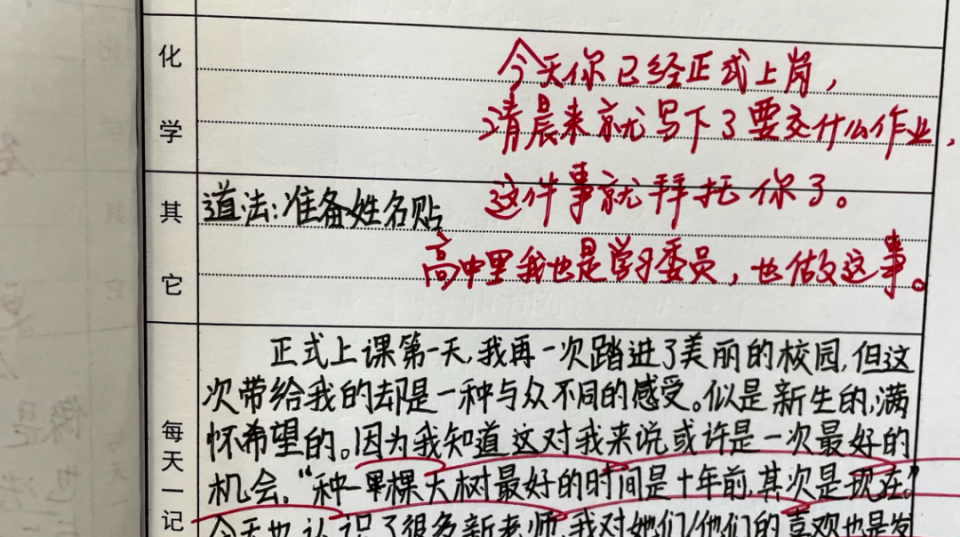 化学
今天你已经正式上岗，
清晨来就写下了要交什么作业，
这件事就拜托你了。
其它
道法：准备姓名贴
高中里我也是学习委员，也做这事。
每天一记
正式上课第一天，我再一次踏进了美丽的校园，但这
次带给我的却是一种与众不同的感受。似是新生的，满
怀希望的。因为我知道这对我来说或许是一次最好的
机会，“种一棵大树最好的时间是十年前，其次是现在。”
今天也认识了很多新老师，我对她们/他们的喜欢也是发